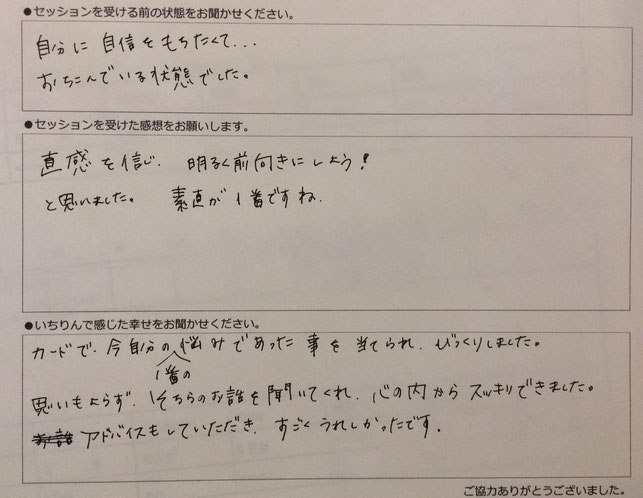 ●セッションを受ける前の状態をお聞かせください。
自分に自信をもちたくて...
おちこんでいる状態でした。
●セッションを受けた感想をお願いします。
直感を信じ、明るく前向きにしよう!
と思いました。 素直が1番ですね。
●いちりんで感じた幸せをお聞かせください。
カードで、今自分の悩みであった事を当てられ、びっくりしました。
1番の
思いもよらず、そちらのお話を聞いてくれ、心の内からスッキリできました。
アドバイスもしていただき、すごくうれしかったです。
ご協力ありがとうございました。